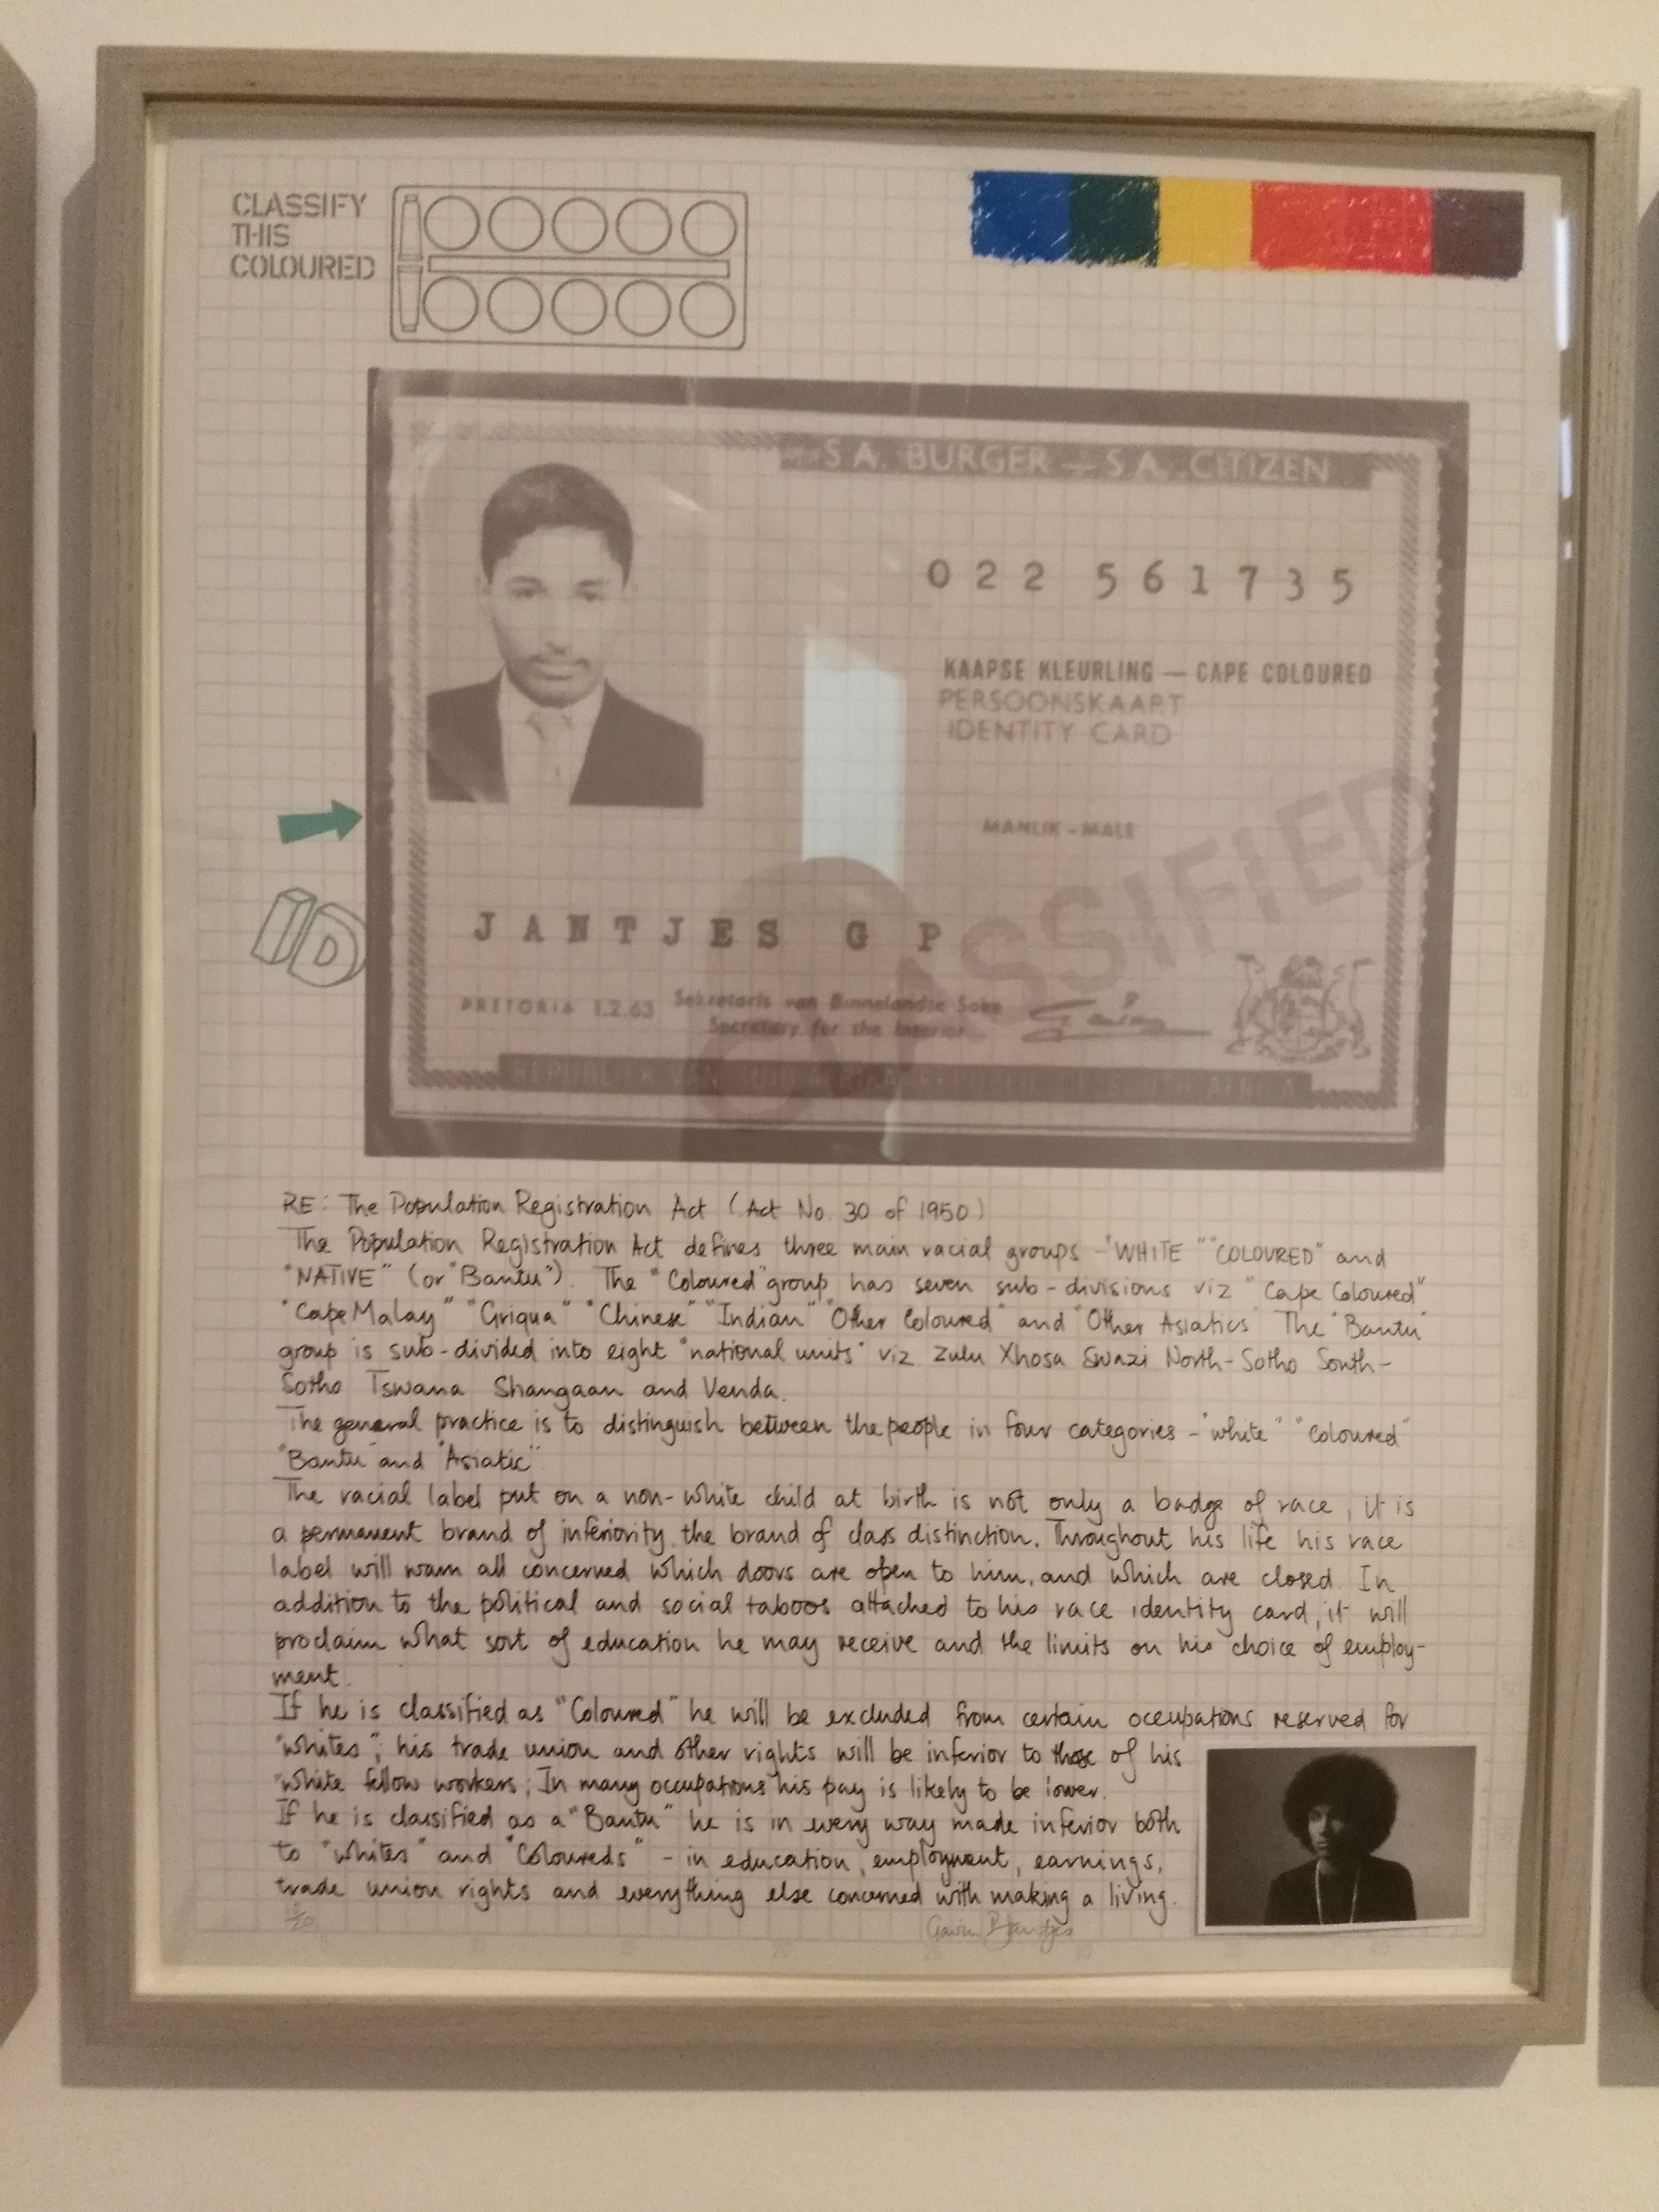 CLASSIFY
THIS
COLOURED
S.A. BURGER — S.A. CITIZEN
022 561735
KAAPSE KLEURLING — CAPE COLOURED
PERSOONSKAART
IDENTITY CARD
MANLIK - MALE
CLASSIFIED
ID
JANTJES G P
PRETORIA 1.2.63
Sekretaris van Binnelandse Sake
Secretary for the Interior
REPUBLIEK VAN SUID-AFRIKA - REPUBLIC OF SOUTH AFRICA
RE: The Population Registration Act (Act No. 30 of 1950)
The Population Registration Act defines three main racial groups - "WHITE" "COLOURED" and
"NATIVE" (or "Bantu"). The "Coloured" group has seven sub-divisions viz "Cape Coloured"
"Cape Malay" "Griqua" "Chinese" "Indian" "Other Coloured" and "Other Asiatics" The "Bantu"
group is sub-divided into eight "national units" viz Zulu Xhosa Swazi North-Sotho South-
Sotho Tswana Shangaan and Venda.
The general practice is to distinguish between the people in four categories - "white" "Coloured"
"Bantu" and "Asiatic"
The racial label put on a non-white child at birth is not only a badge of race, it is
a permanent brand of inferiority, the brand of class distinction. Throughout his life his race
label will warn all concerned which doors are open to him, and which are closed. In
addition to the political and social taboos attached to his race identity card, it will
proclaim what sort of education he may receive and the limits on his choice of employ-
ment.
If he is classified as "Coloured" he will be excluded from certain occupations reserved for
"whites"; his trade union and other rights will be inferior to those of his
"white fellow workers; In many occupations his pay is likely to be lower.
If he is classified as a "Bantu" he is in every way made inferior both
to "whites" and "Coloureds" - in education, employment, earnings,
trade union rights and everything else concerned with making a living.
Gavin Jantjes